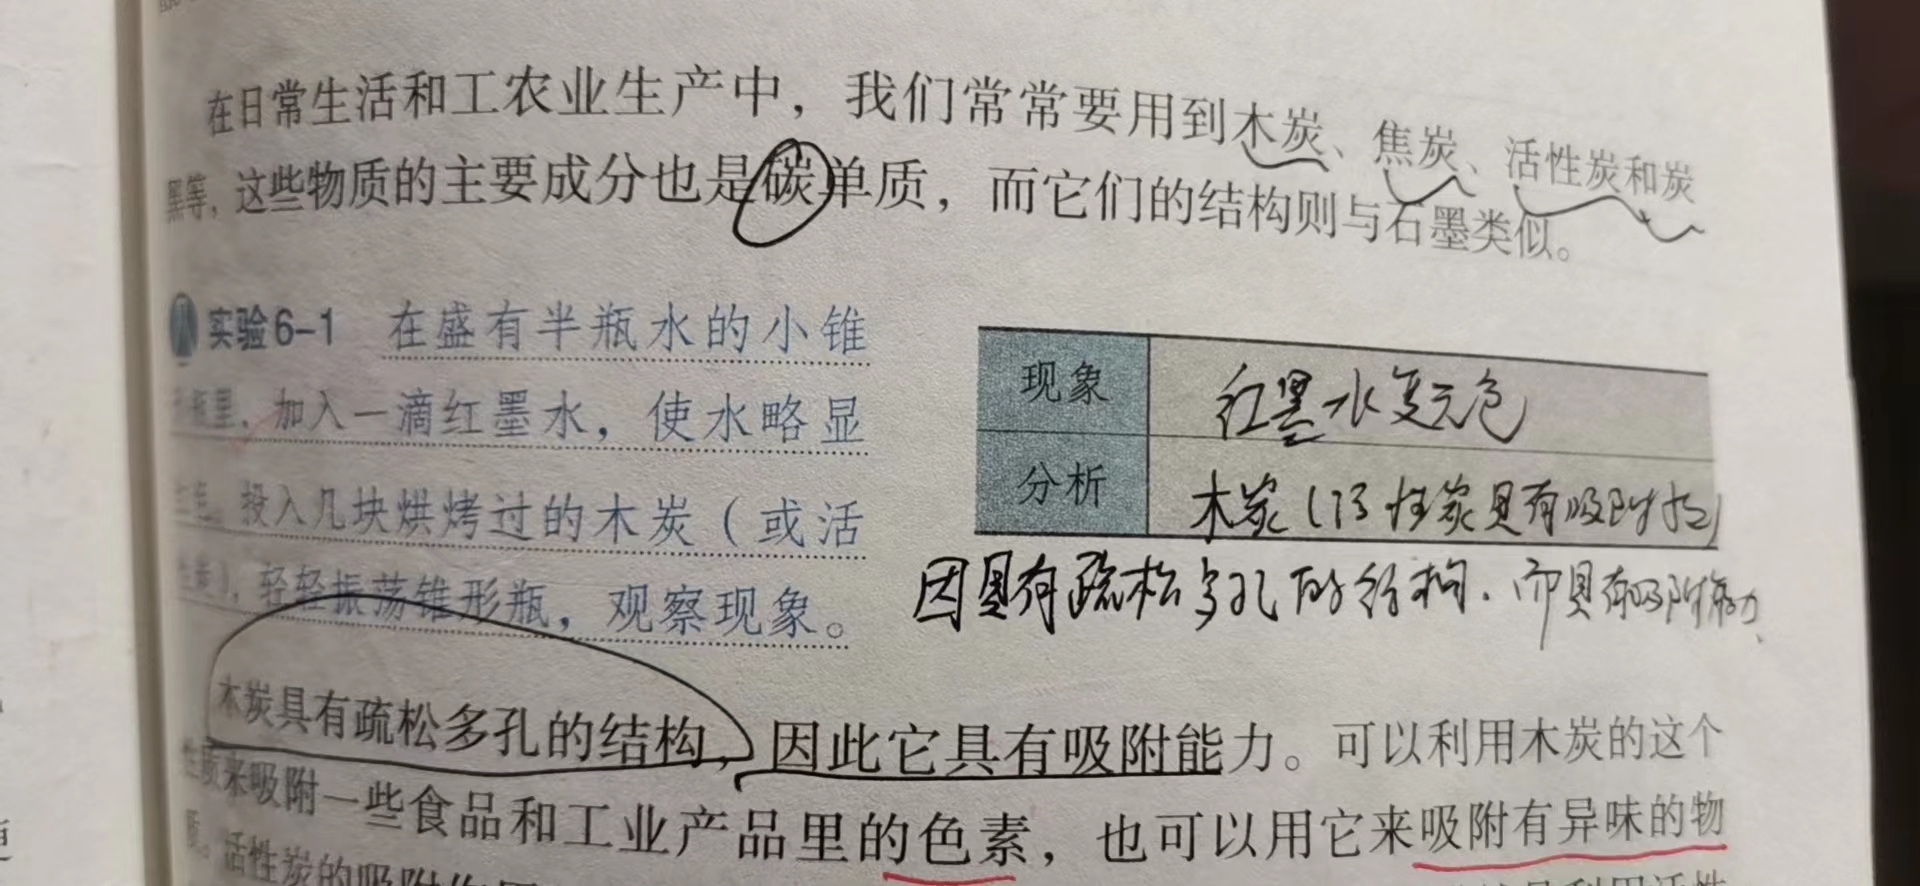 在日常生活和工农业生产中，我们常常要用到木炭、焦炭、活性炭和炭
黑等，这些物质的主要成分也是碳单质，而它们的结构则与石墨类似。
实验6-1 在盛有半瓶水的小锥
瓶里，加入一滴红墨水，使水略显
投入几块烘烤过的木炭（或活
），轻轻振荡锥形瓶，观察现象。
现象 红墨水变无色
分析 木炭（活性炭具有吸附性）
因具有疏松多孔的结构.而具有吸附能力
木炭具有疏松多孔的结构，因此它具有吸附能力。可以利用木炭的这个
性质来吸附一些食品和工业产品里的色素，也可以用它来吸附有异味的物
质。活性炭的吸附